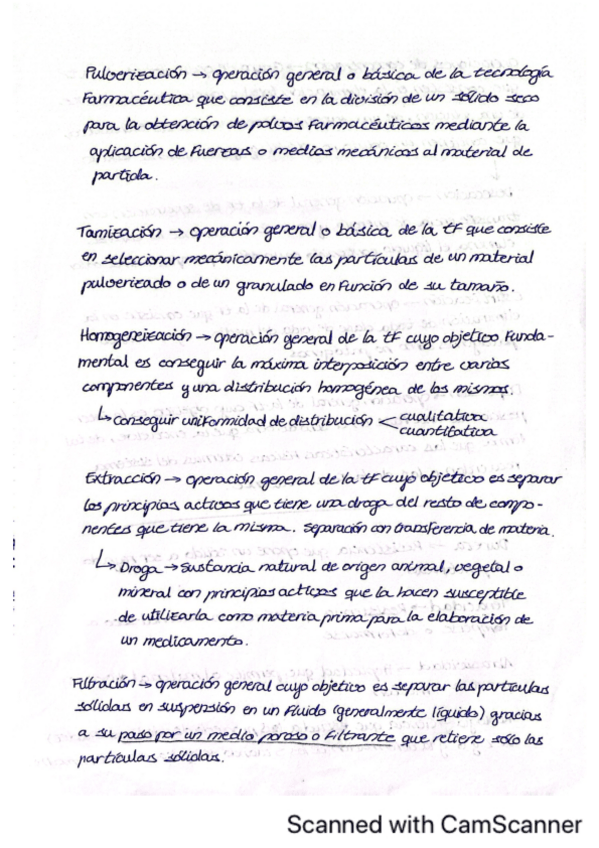 Pulverización → operación general o básica de la tecnología
Farmacéutica que consiste en la división de un sólido seco
para la obtención de polvos Farmacéuticos mediante la
aplicación de Fuerzas o medios mecánicos al material de
partida.
Tamización → operación general o básica de la tF que consiste
en seleccionar mecánicamente las partículas de un material
pulverizado o de un granulado en Función de su tamaño.
Homogeneización → operación general de la tF cuyo objetivo Funda-
mental es conseguir la máxima interposición entre varios
componentes y una distribución homogénea de los mismos.
↳ conseguir uniformidad de distribución < cualitativa
cuantitativa
Extracción → operación general de la tF cuyo objetivo es separar
los principios activos que tiene una droga del resto de compo-
nentes que tiene la misma. separación con transferencia de materia.
↳ Droga → sustancia natural de origen animal, vegetal o
mineral con principios activos que la hacen susceptible
de utilizarla como materia prima para la elaboración de
un medicamento.
Filtración → operación general cuyo objetivo es separar las partículas
sólidas en suspensión en un Fluido (generalmente líquido) gracias
a su paso por un medio poroso o Filtrante que retiene sólo las
partículas sólidas.
Scanned with CamScanner